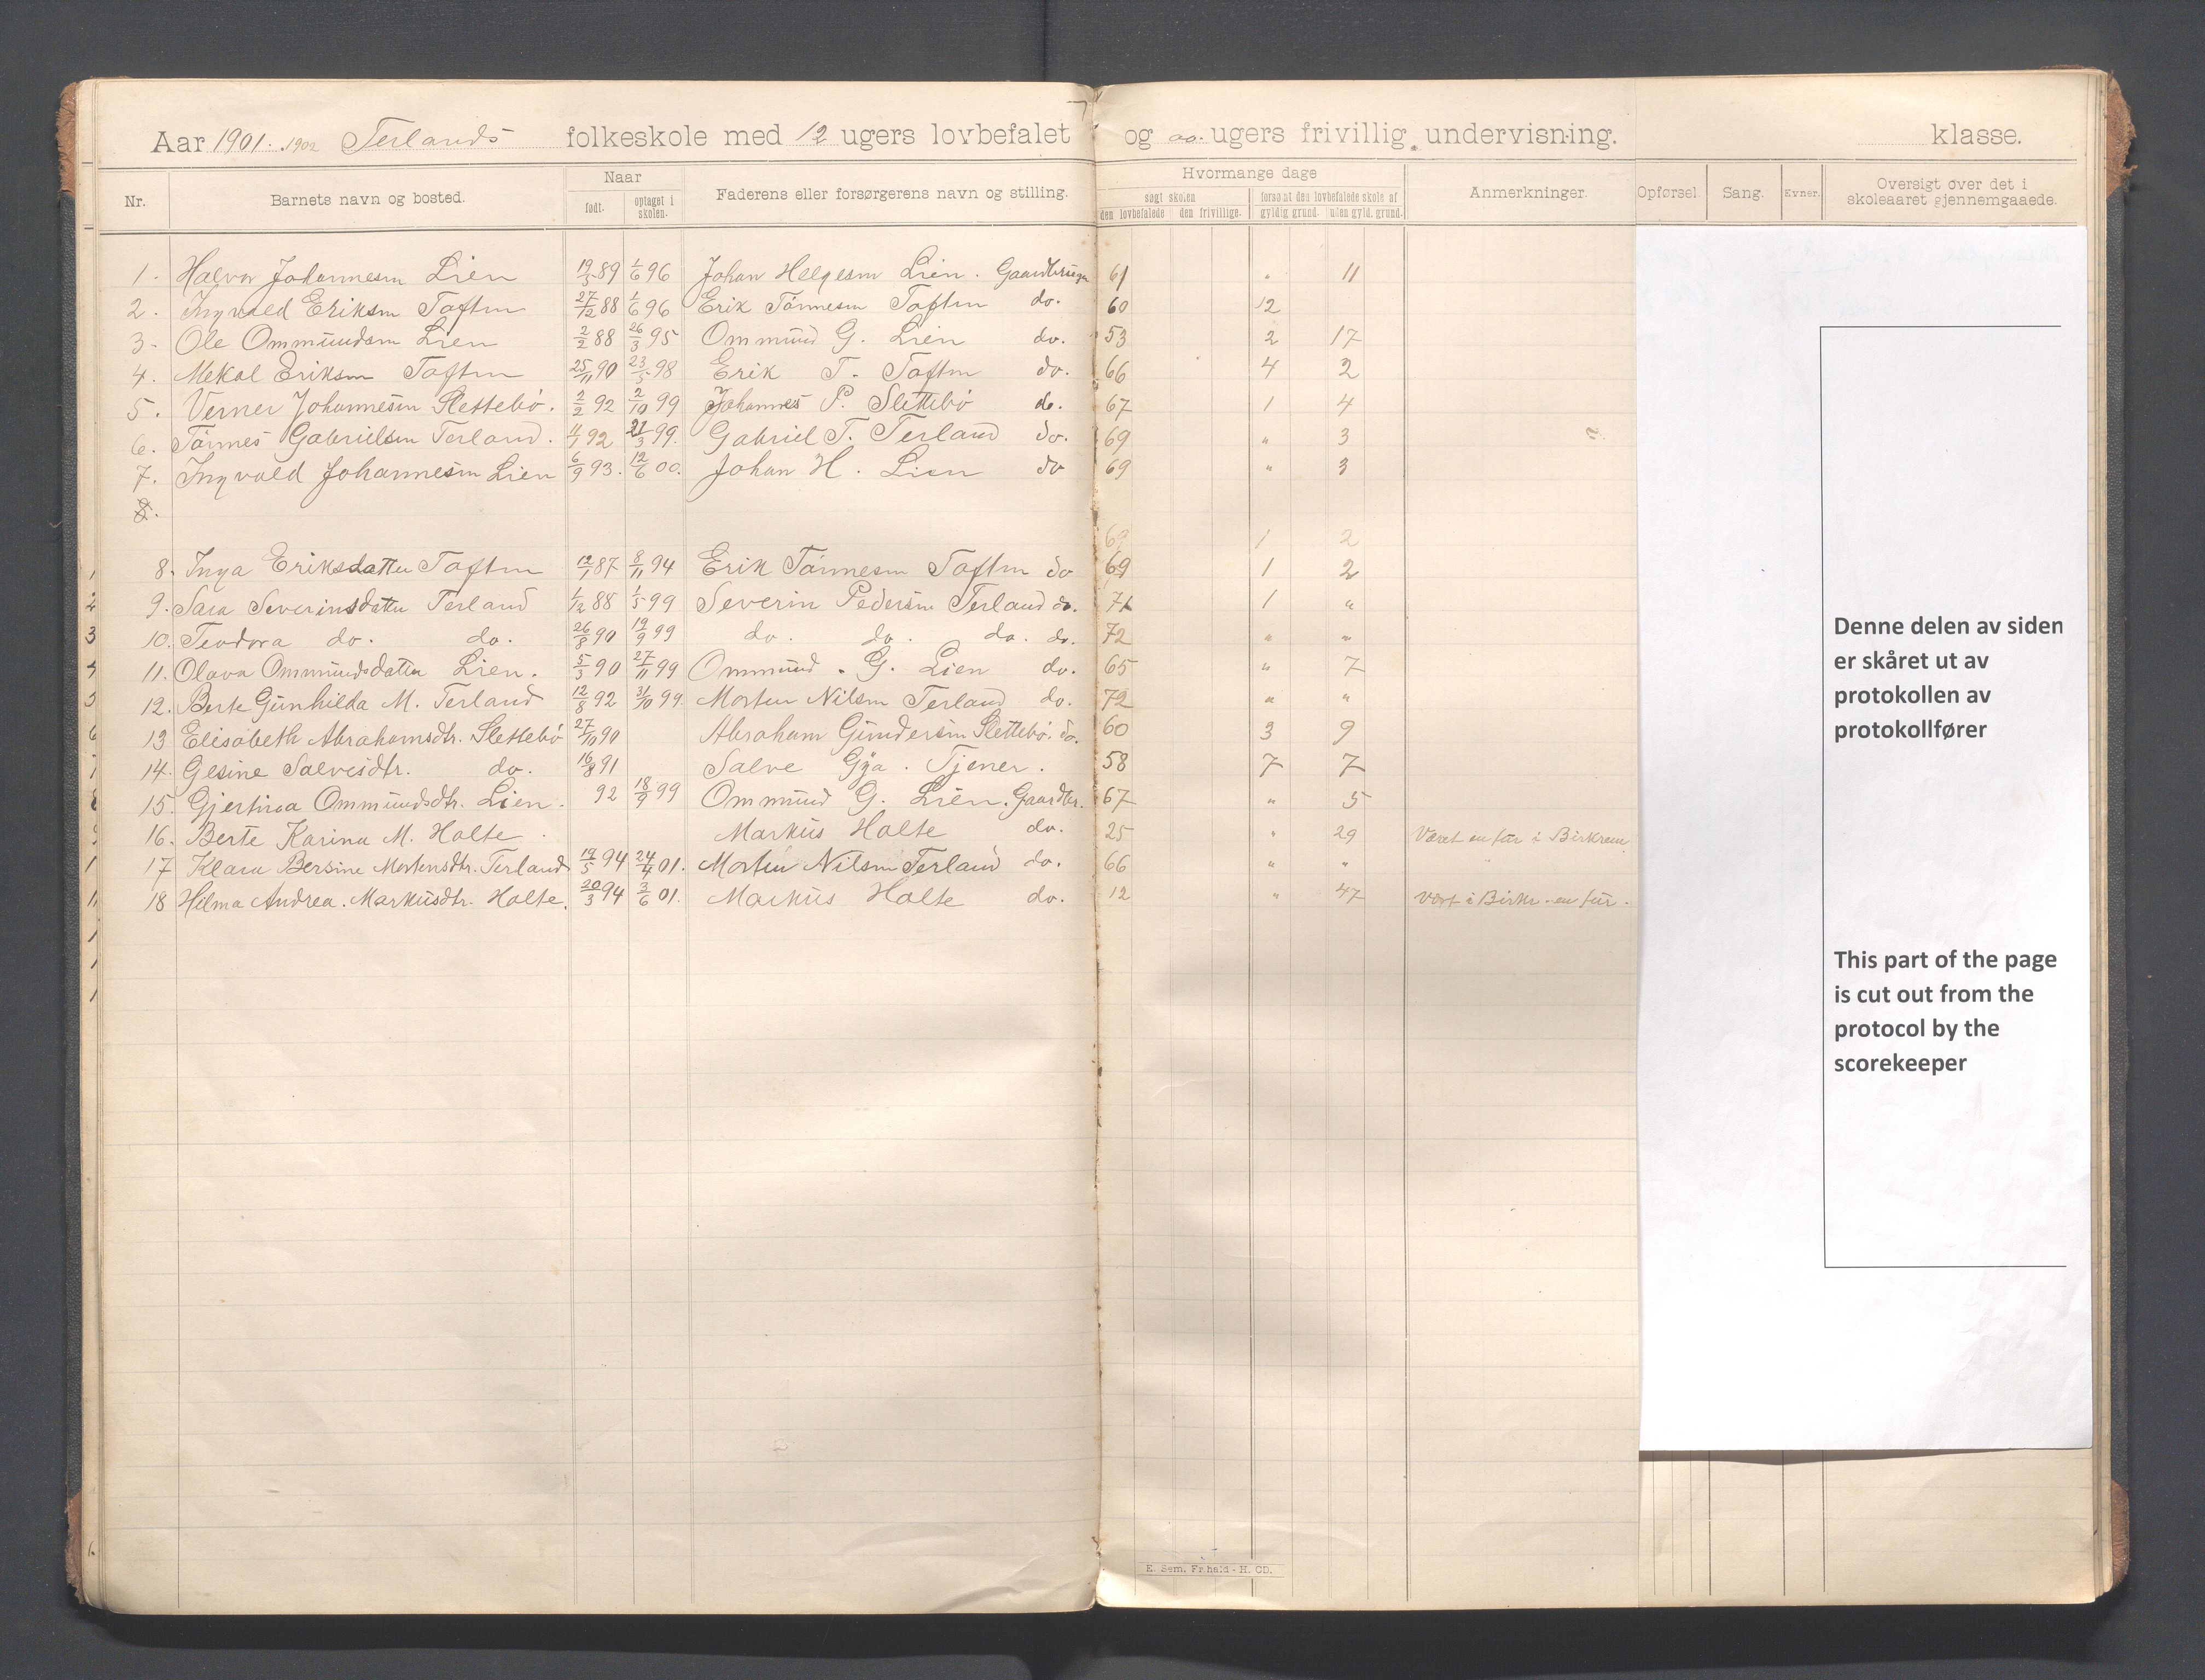 Aar 1901. 1902 Terlands folkeskole med 12 ugers lovbefalet og ugers frivillig undervisning. klasse.
Nr. Barnets navn og bosted. Naar født. optaget i skolen. Faderens eller forsørgerens navn og stilling. Hvormange dage søgt skolen den lovbefalede den frivillige. forsømt den lovbefalede skole af gyldig grund. uden gyld. grund. Anmerkninger. Opførsel Sang. Evner. Oversigt over det i skoleaaret gjennemgaaede.
1. Halvor Johannesen Lien 19/5 89 1/6 96 Johan Helgesen Lien. Gaardbruger 61 " 11
2. Ingvald Eriksen Toften 27/12 88 1/6 96 Erik Tönnesen Toften do. 60 12
3. Ole Ommundsen Lien 2/2 88 26/3 95 Ommund G. Lien do. 53 2 17
4. Mekal Eriksen Toften 25/11 90 23/5 98 Erik T. Toften do. 66 4 2
5. Verner Johannesen Slettebö. 2/2 92 2/10 99 Johannes P. Slettebö do. 67 1 4
6. Tönnes Gabrielsen Terland. 11/1 92 21/3 99. Gabriel T. Terland do. 69 " 3
7. Ingvald Johannesen Lien 6/9 93. 12/6 00. Johan H. Lien do 69 " 3
8.
1 2
8. Inga Eriksdatter Toften 12/1 87 8/11 94 Erik Tönnesen Toften do 69 1 2
9. Sara Severinsdatter Terland 1/12 88 1/5 99 Severin Pedersen Terland do. 71 1 "
10. Teodora do. do. 26/8 90 19/9 99 do. do. do. do. 72 " "
11. Olava Ommundsdatter Lien. 5/3 90 27/11 99 Ommund G. Lien do. 65 " 7
12. Berte Gunhilda M. Terland 12/8 92 31/10 99 Morten Nilsen Terland do. 72 " "
13 Elisabeth Abrahamsdtr. Slettebö 27/10 90 Abraham Gundersen Slettebö. do. 60 3 9
14. Gesine Salvesdtr. do. 16/8 91 Salve Gya. Tjener. 58 7 7
15. Gjertina Ommundsdtr. Lien. 92 18/9 99 Ommund G. Lien. Gaardbr. 67 " 5
16. Berte Karina M. Holte Markus Holte do. 25 " 29 Været en tur i Birkrem
17 Klara Bersine Mortensdtr. Terland 19/5 94 24/4 01. Morten Nilsen Terland do. 66 " "
18 Helma Andrea. Markusdtr. Holte. 20/3 94 3/6 01. Markus Holte do. 12 " 47 Vært i Birkr. en tur.
Denne delen av siden
er skåret ut av
protokollen av
protokollfører
This part of the page
is cut out from the
protocol by the
scorekeeper
E. Sem. Fr.hald - H. OD.